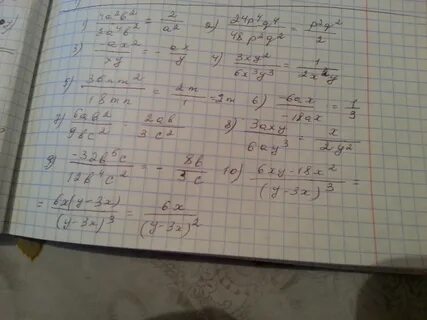 1) 4a²b²/3a⁴b² = 2/a² 2) 24p⁴q⁴/48p²q² = p²q²/2
3) -ax²/xy = -ax/y 4) 3xy²/6x³y³ = 1/2x²y
5) 36mm²/18mn = 2m/1 = 2m 6) -6ax/-18ax = 1/3
7) 6ab²/9bc² = 2ab/3c² 8) 3axy/6ay³ = x/2y²
9) -32b⁵c/12b⁴c² = - 8b/3c 10) 6xy-18x²/(y-3x)³ =
= 6x(y-3x)/(y-3x)³ = 6x/(y-3x)²